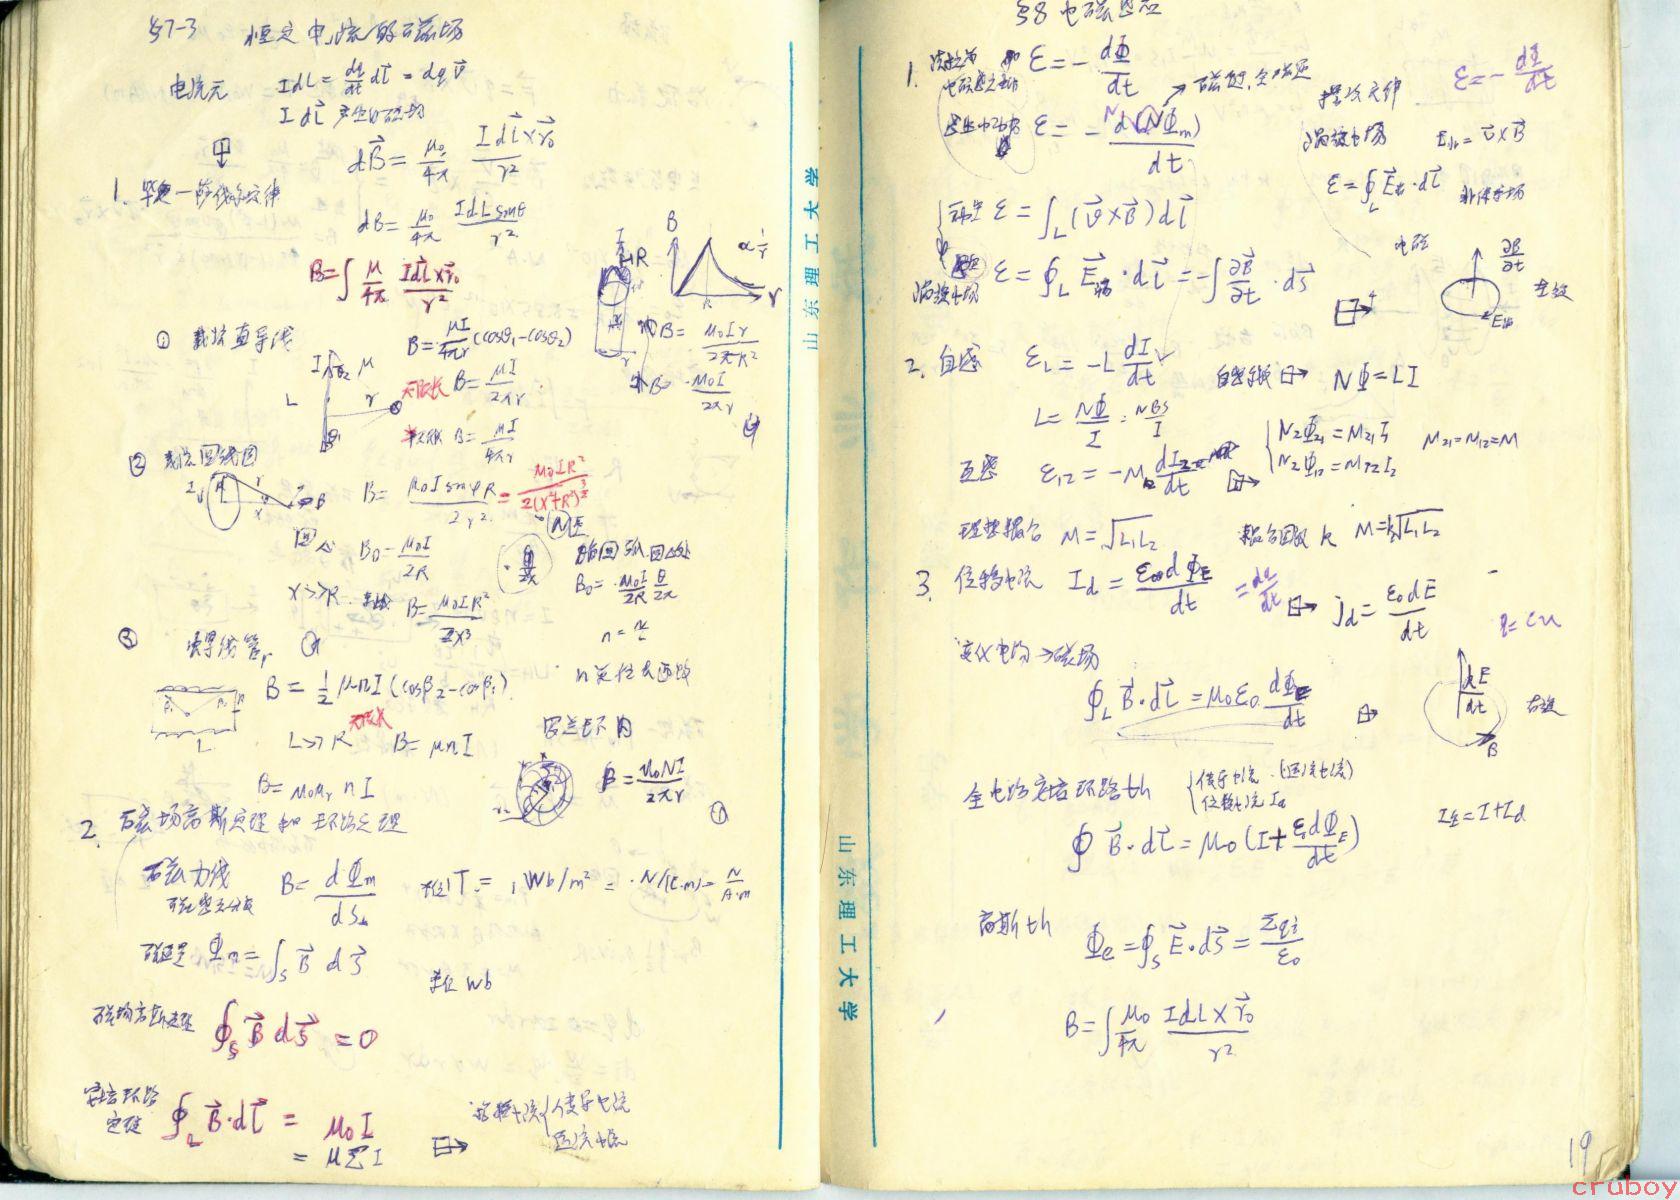 §7-3 恒定电流的磁场
电流元 Idl = dq/dt dl⃗ = dq v⃗
I dl⃗ 产生的磁场
dB⃗ = μ₀/4π Idl⃗×r⃗₀/r²
1. 毕奥一萨伐尔定律
dB = μ₀/4π IdL sinθ/r²
B = ∫ μ/4π Idl⃗×r⃗₀/r²
① 载流直导线
B = μI/4πr (cosθ₁-cosθ₂)
无限长 B = μI/2πr
半无限 B = μI/4πr
内 B = μ₀Ir/2πR²
外 B = μ₀I/2πr
② 载流圆线圈
B = μ₀I sinφ R/2r² = μ₀IR²/2(x²+R²)^3/2
圆心 B₀ = μ₀I/2R
x>>R B = μ₀IR²/2x³
圆弧.圆心处
B₀ = μ₀I/2R θ/2π
③ 螺线管
B = ½ μnI (cosβ₂-cosβ₁)
无限长
L>>R B = μnI
B = μ₀μᵣ nI
n = N/L
n 单位长匝数
罗兰环内
B = μ₀NI/2πr
2. 磁场高斯定理和环路定理
磁力线
B = dΦm/dS⊥ 单位 T = 1 Wb/m² = N/(C·m) = N/A·m
磁通量 Φm = ∫s B⃗ dS⃗
单位 Wb
磁场高斯定理 ∮s B⃗ dS⃗ = 0
安培环路定理 ∮L B⃗·dl⃗ = μ₀I
= μΣI
传导电流
山东理工大学
山东理工大学
§8 电磁感应
1. 法拉第电磁感应定律 ε = -dΦ/dt
磁通, 全磁通
ε = -d(NΦm)/dt
楞次定律 ε = -dΦ/dt
涡旋电场 = v⃗×B⃗
ε = ∮L E⃗·dl⃗ 非保守场
动生 ε = ∫L (v⃗×B⃗) dl⃗
涡旋电场 ε = ∮L E⃗·dl⃗ = -∫ ∂B⃗/∂t · dS⃗
∂B/∂t 左旋
2. 自感 εL = -L dI/dt
自感系数 NΦ = LI
L = NΦ/I = NBS/I
互感 ε₁₂ = -M₁₂ dI₂/dt
N₂Φ₂₁ = M₂₁I₁
N₂Φ₁₂ = M₁₂I₂
M₂₁ = M₁₂ = M
理想耦合 M = √L₁L₂
耦合因数 k M = k√L₁L₂
3. 位移电流 Id = ε₀dΦE/dt = dq/dt
jd = ε₀dE/dt
q = cu
变化电场→磁场
∮L B⃗·dl⃗ = μ₀ε₀ dΦE/dt
dE/dt 右旋
B
全电路安培环路th
传导电流
位移电流 Id
I全 = I+Id
∮ B⃗·dl⃗ = μ₀(I+ε₀dΦE/dt)
高斯th
Φe = ∮s E⃗·dS⃗ = Σqi/ε₀
B = ∫ μ₀/4π Idl×r⃗₀/r²
19
cruboy